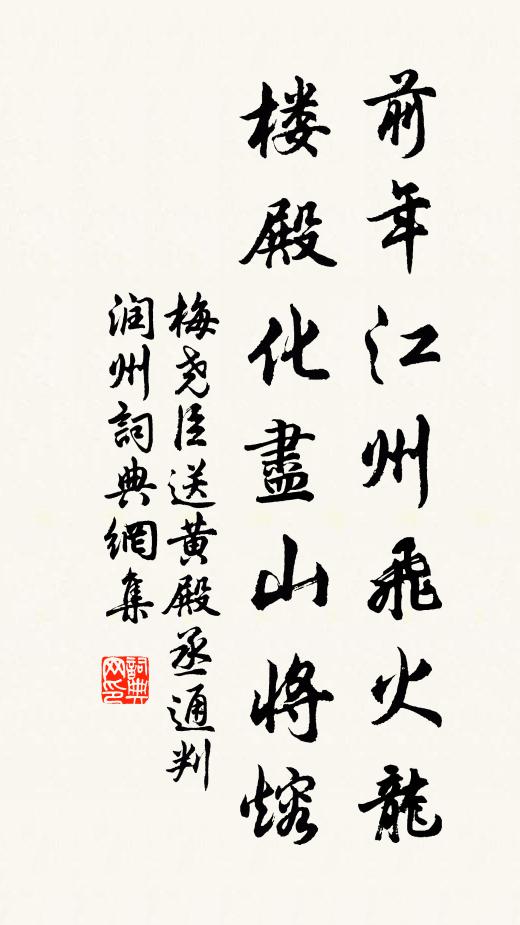 前年江州飛火龍
楼殿化盡山将熔
梅尧臣送黄殿丞通判
润州詞典網集
詞典网印